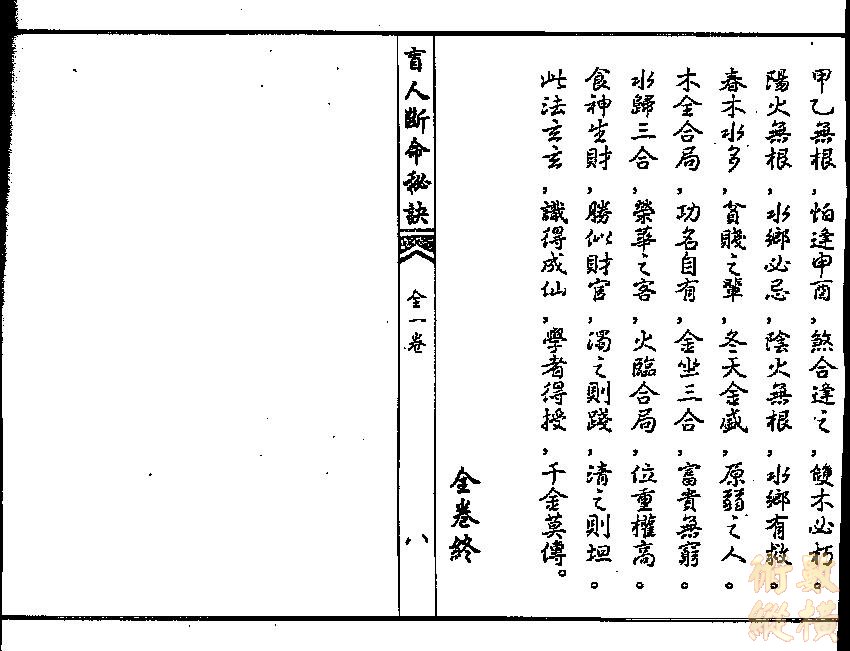 甲乙無根,怕逢申酉,煞合逢之,雙木必朽。
陽火無根,水鄉必忌,陰火無根,水鄉有救。
春木水多,貧賤之輩,冬天金盛,原弱之人。
木全合局,功名自有,金坐三合,富貴無窮。
水歸三合,榮華之客,火臨合局,位重權高。
食神生財,勝似財官,濁之則踐,清之則坦。
此法玄玄,識得成仙,學者得授,千金莫傳。
全卷終
盲人斷命秘訣
全一卷
八
數術縱橫